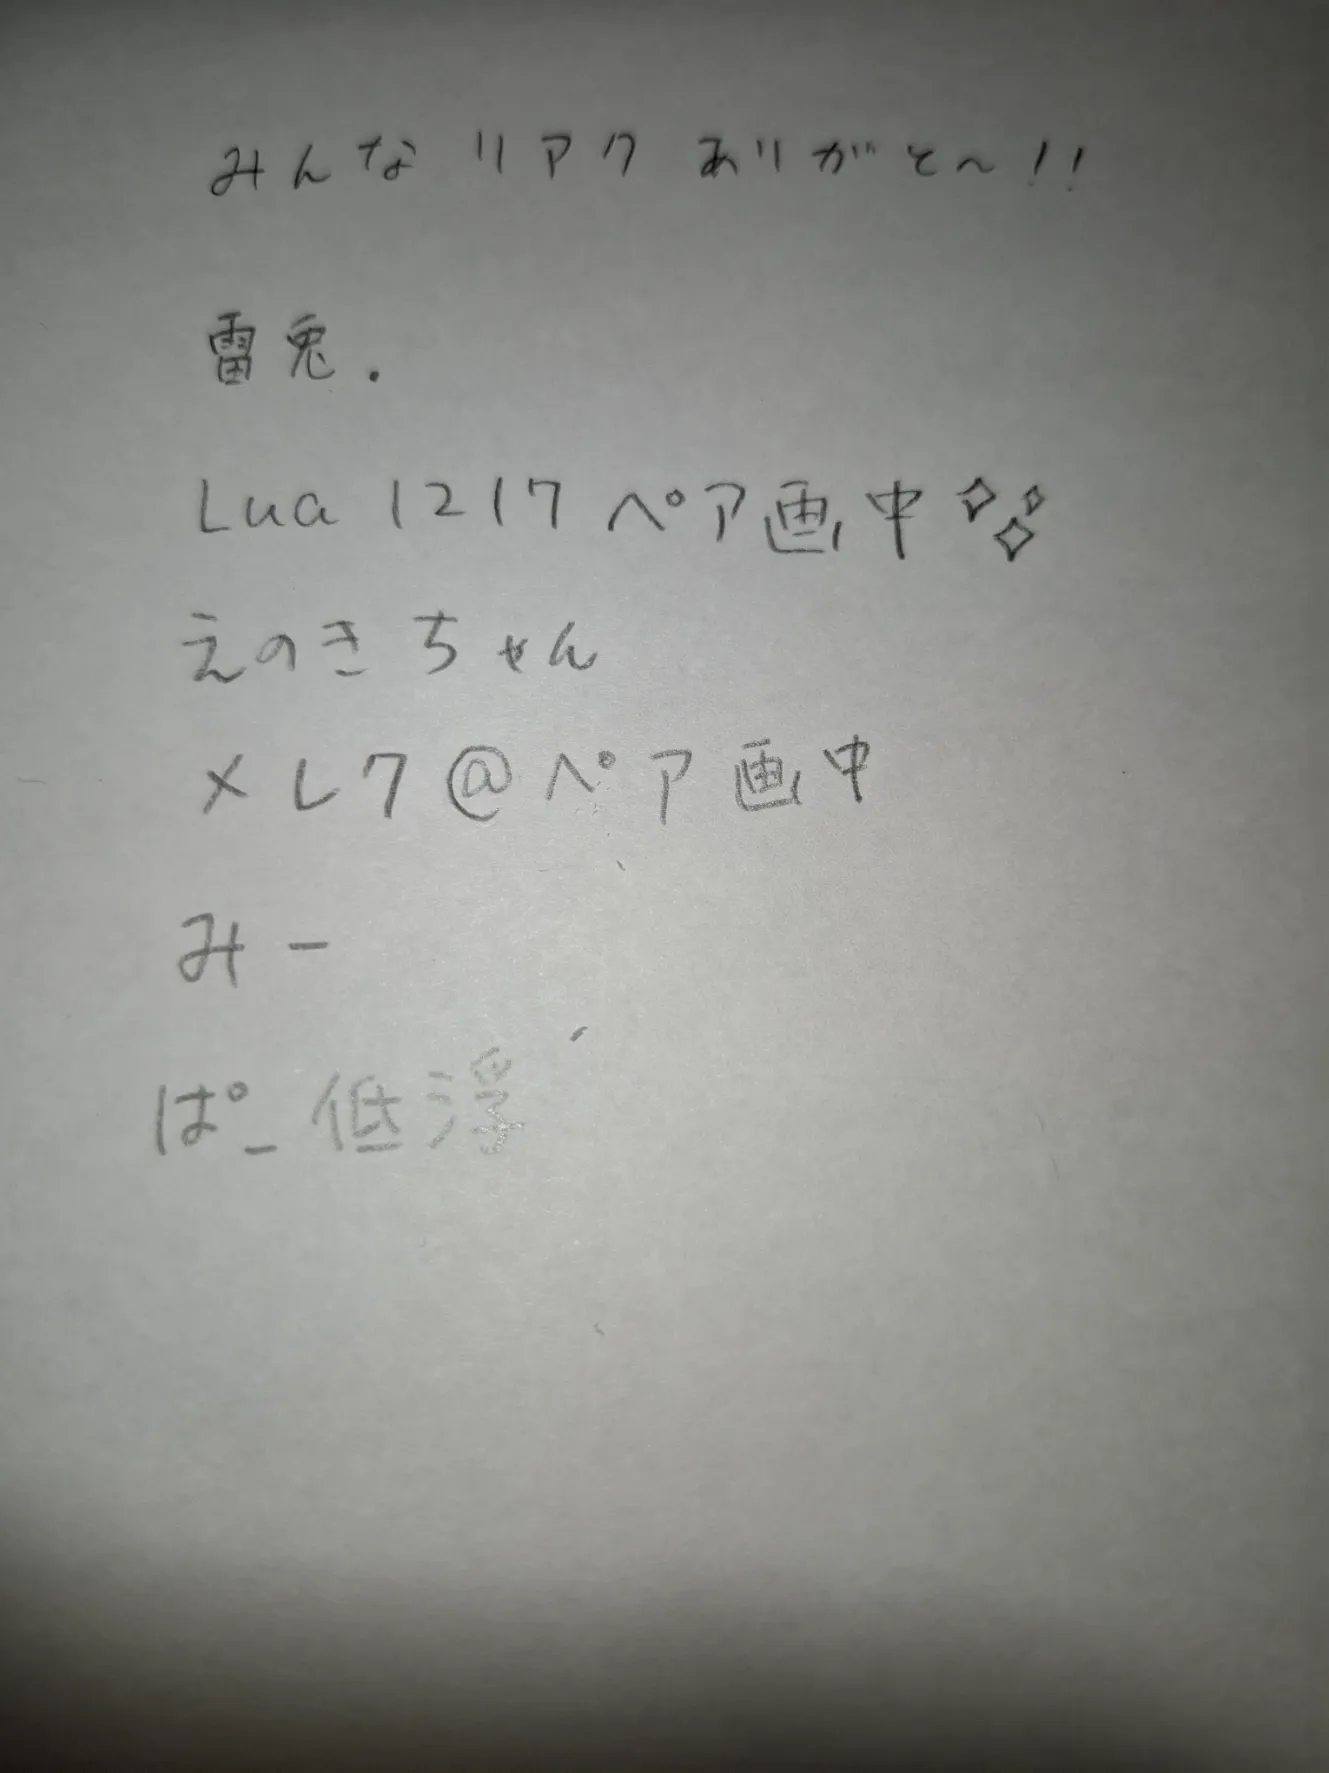 みんな リアク ありがと〜!!
雷兎.
Lua 1217 ペア画中
えのきちゃん
メレク@ペア画中
みー
ぱ_低浮